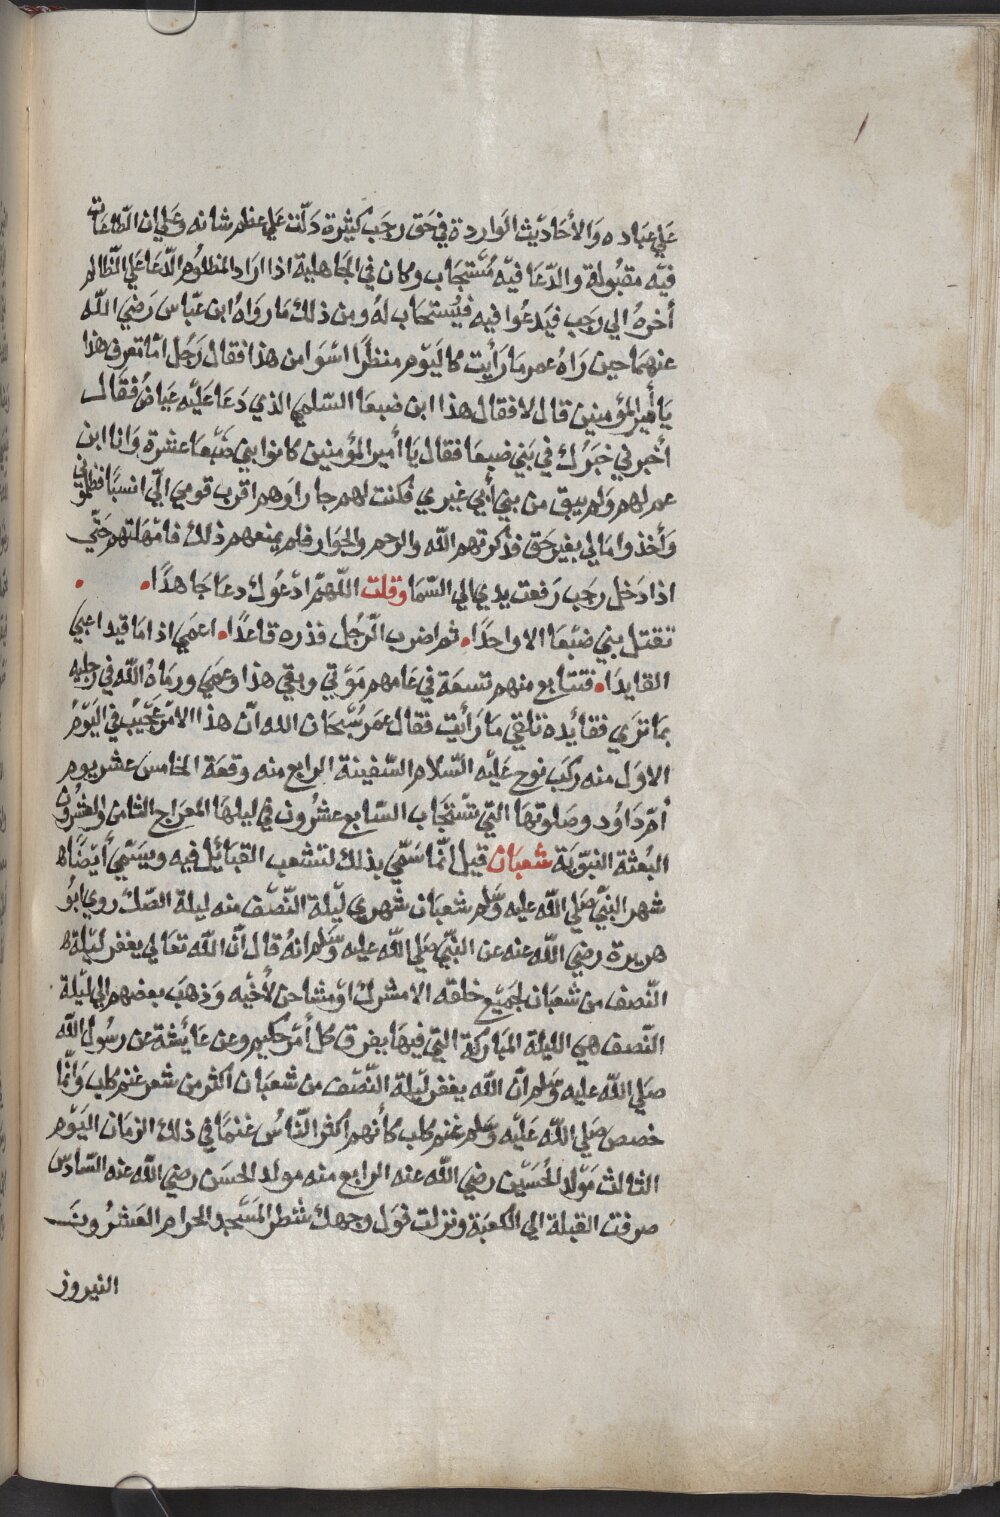 علي عباده والأحاديث الواردة في حق رجب كثيرة دلت علي عظم شانه وعلي ان الطاعات
فيه مقبولة والدعا فيه مستجاب وكان في الجاهلية اذا اراد المظلوم الدعا علي الظالم
أخره الي رجب فيدعوا فيه فيستجاب له ومن ذلك ما رواه ابن عباس رضي الله
عنهما حين راه عمر ما رأيت كاليوم منظرا اسوا من هذا فقال رجل اما تعرف هذا
يا أمير المؤمنين قال لا فقال هذا ابن ضبعا السلمي الذي دعا عليه عياض فقال
أخبرني خبرك في بني ضبعا فقال يا أمير المؤمنين كانوا بني ضبعا عشرة وانا ابن
عم لهم ولم يبق من بني أبي غيري فكنت لهم جارا وهم اقرب قومي الي انسبا فظلموني
وأخذوا مالي بغير حق فذكرتهم الله والرحم والجوار فلم يمنعهم ذلك فامهلتهم حتي
اذا دخل رجب رفعت يدي الي السما وقلت اللهم ادعوك دعا جاهدا
تقتل بني ضبعا الا واحدا ثم اضرب الرجل فذره قاعدا اعمي اذا ما قيد اعيي
القايدا فتتابع منهم تسعة في عامهم موتي وبقي هذا وعمي ورماه الله في رجليه
بما تري فقايده تلقي ما رأيت فقال عمر سبحان الله ان هذا الامر عجيب في اليوم
الاول منه ركب نوح عليه السلام السفينة الرابع منه وقعة الخامس عشر يوم
أم داود وصلوتها التي تستجاب السابع عشرون في ليلها المعراج الثامن والعشرون
البعثة النبوية شعبان قيل انما سمي بذلك لتشعب القبائل فيه ويسمي أيضا
شهر النبي صلي الله عليه وسلم شعبان شهري ليلة النصف منه ليلة الصك روي ابو
هريرة رضي الله عنه عن النبي صلي الله عليه وسلم انه قال ان الله تعالي يغفر ليلة
النصف من شعبان لجميع خلقه الا مشرك او مشاحن لأخيه وذهب بعضهم الي ليلة
النصف هي الليلة المباركة التي فيها يفرق كل أمر حكيم وعن عايشة عن رسول الله
صلي الله عليه وسلم ان الله يغفر ليلة النصف من شعبان أكثر من شعر غنم كلب وانما
خصص صلي الله عليه وسلم غنم كلب كأنهم اكثر الناس غنما في ذلك الزمان اليوم
الثالث مولد الحسين رضي الله عنه الرابع منه مولد الحسن رضي الله عنه السادس
صرفت القبلة الي الكعبة ونزلت فول وجهك شطر المسجد الحرام العشرون
النيروز